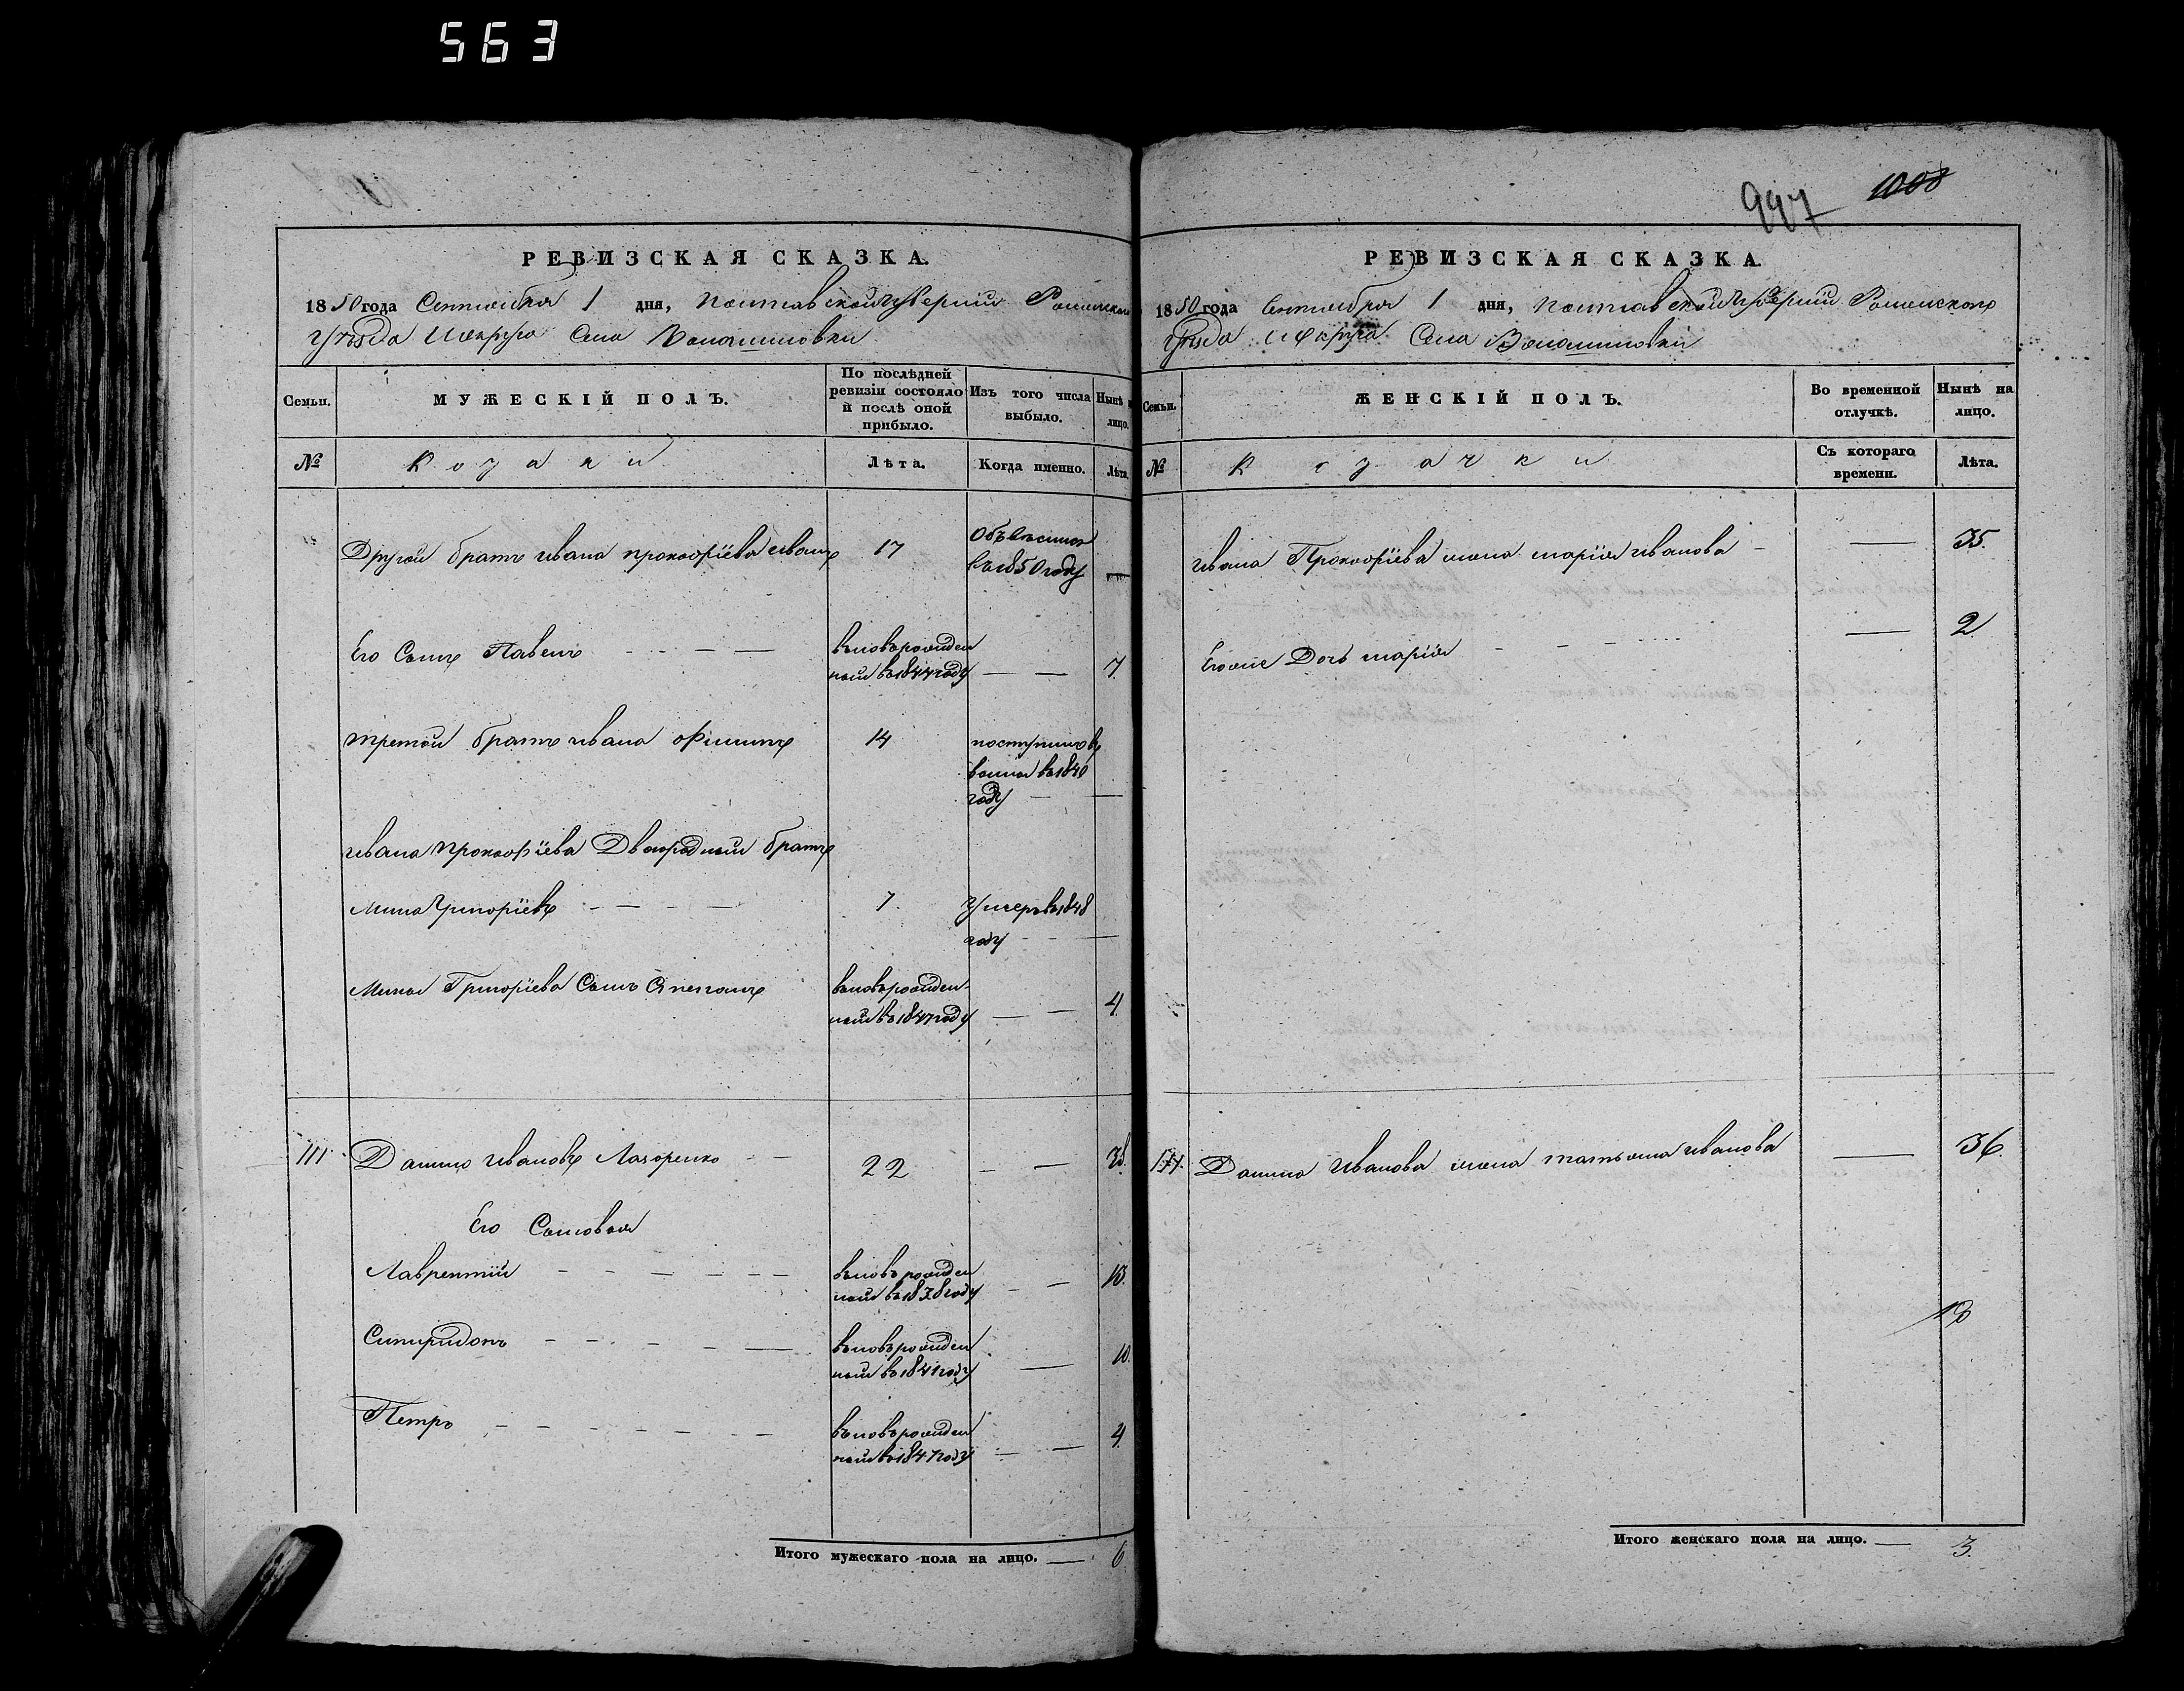 563
997 1008
РЕВИЗСКАЯ СКАЗКА.
1850 года Сентября 1 дня, Полтавской Губерніи Роменского
уѣзда и округа Села Волошиновки
Семьи. МУЖЕСКІЙ ПОЛЪ. По послѣдней ревизіи состояло и послѣ оной прибыло. Изъ того числа выбыло. Нынѣ на лицо.
№ Козаки Лѣта. Когда именно. Лѣта.
Другой братъ Ивана Прокофіева Иванъ 17
въ 1850 году
Его Сынъ Павелъ вновьрожден
ный въ 1844 году 7.
третой братъ Ивана Филипъ 14 поступилъ въ
1840
году
Ивана Прокофіева Двоюродный братъ
Мина Григоріевъ 7. Умеръ въ 1848
году
Мины Григоріева Сынъ вновьрожден-
ный въ 1847 году 4.
111 Данило Ивановъ Лазоренко 22 38.
Его Сыновья
Лаврентій вновьрожден
ный въ 1838 году 13.
Спиридонъ вновьрожден
ный въ 1841 году 10.
Петръ вновьрожден
ный въ 1847 году 4.
Итого мужескаго пола на лицо. 6
РЕВИЗСКАЯ СКАЗКА.
1850 года Сентября 1 дня, Полтавской Губерніи Роменского
уѣзда и округа Села Волошиновки
Семьи. ЖЕНСКІЙ ПОЛЪ. Во временной отлучкѣ. Нынѣ на лицо.
№ Козачки Съ котораго времени. Лѣта.
Ивана Прокофіева жена Марія Иванова 35.
Егоже Дочь Марія 2.
111. Данила Иванова жена Татьяна Иванова 36.
Итого женскаго пола на лицо. 3.